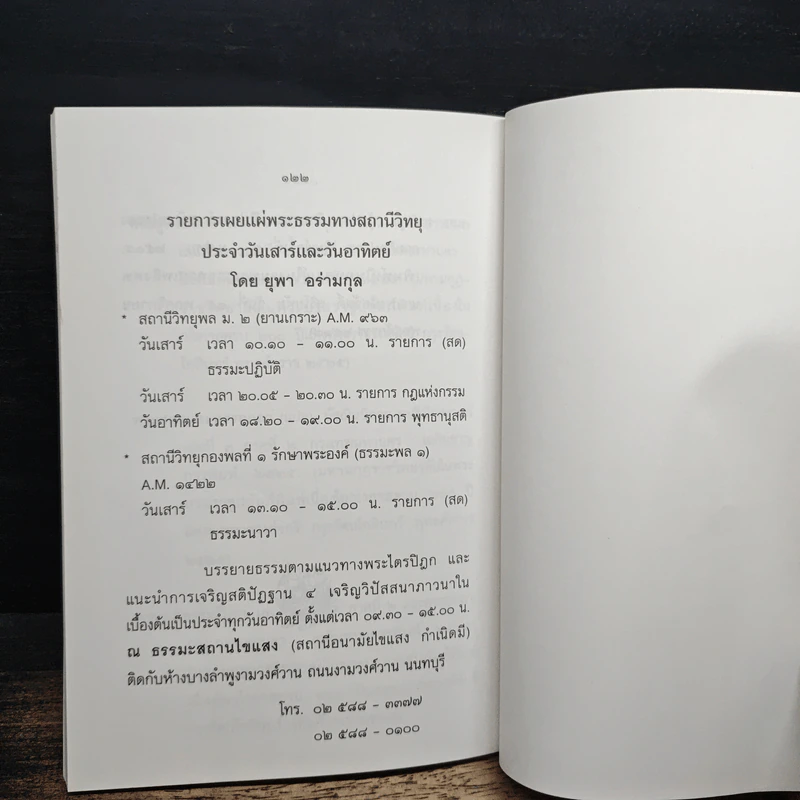 ๑๒๒
รายการเผยแผ่พระธรรมทางสถานีวิทยุ
ประจำวันเสาร์และวันอาทิตย์
โดย ยุพา อร่ามกุล
* สถานีวิทยุพล ม. ๒ (ยานเกราะ) A.M. ๙๖๓
วันเสาร์ เวลา ๑๐.๑๐ - ๑๑.๐๐ น. รายการ (สด)
ธรรมะปฏิบัติ
วันเสาร์ เวลา ๒๐.๐๕ - ๒๐.๓๐ น. รายการ กฎแห่งกรรม
วันอาทิตย์ เวลา ๑๘.๒๐ - ๑๙.๐๐ น. รายการ พุทธานุสติ
* สถานีวิทยุกองพลที่ ๑ รักษาพระองค์ (ธรรมะพล ๑)
A.M. ๑๔๒๒
วันเสาร์ เวลา ๑๓.๑๐ - ๑๕.๐๐ น. รายการ (สด)
ธรรมะนาวา
บรรยายธรรมตามแนวทางพระไตรปิฎก และ
แนะนำการเจริญสติปัฏฐาน ๔ เจริญวิปัสสนาภาวนาใน
เบื้องต้นเป็นประจำทุกวันอาทิตย์ ตั้งแต่เวลา ๐๙.๓๐ - ๑๕.๐๐ น.
ณ ธรรมะสถานไขแสง (สถานีอนามัยไขแสง กำเนิดมี)
ติดกับห้างบางลำพูงามวงศ์วาน ถนนงามวงศ์วาน นนทบุรี
โทร. ๐๒ ๕๘๘ - ๓๓๗๗
๐๒ ๕๘๘ - ๐๑๐๐